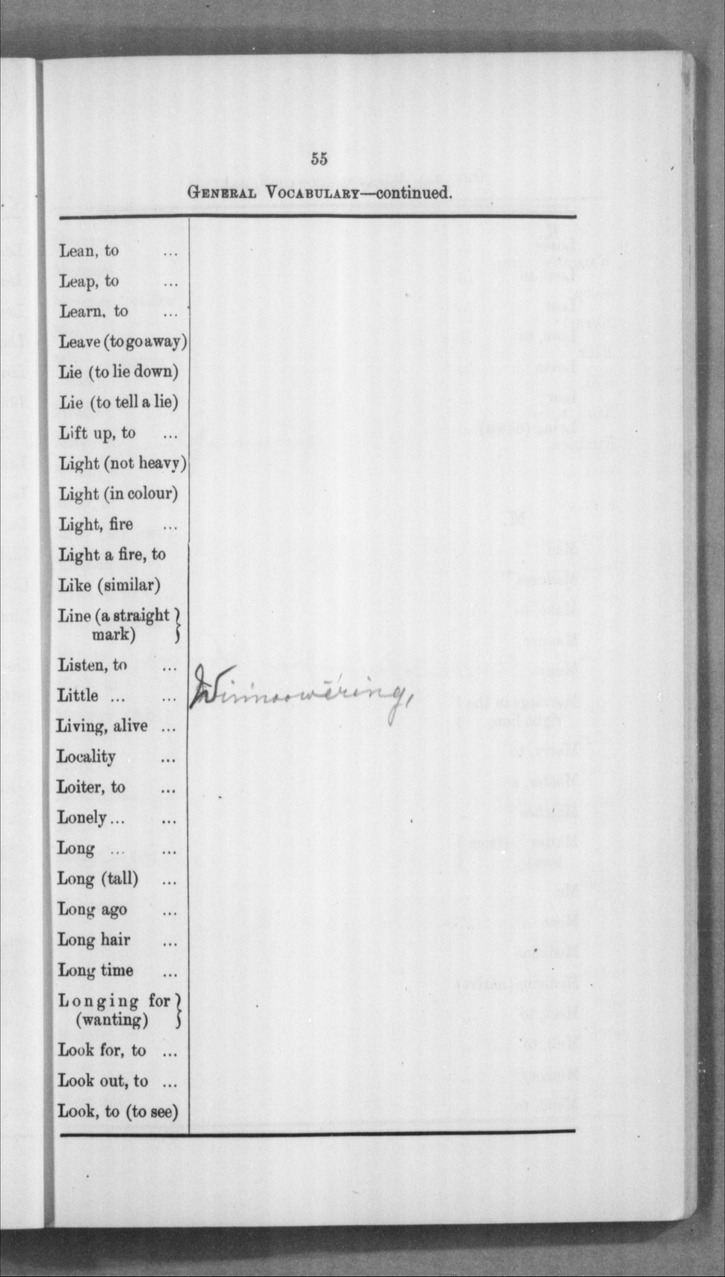 55
GENERAL VOCABULARY—continued.
Lean, to ...
Leap, to ...
Learn, to ...
Leave (to go away)
Lie (to lie down)
Lie (to tell a lie)
Lift up, to ...
Light (not heavy)
Light (in colour)
Light, fire ...
Light a fire, to
Like (similar)
Line (a straight }
mark)
Listen, to ...
Little ... ...
Living, alive ...
Locality ...
Loiter, to ...
Lonely ... ...
Long ... ...
Long (tall) ...
Long ago ...
Long hair ...
Long time ...
Longing for }
(wanting)
Look for, to ...
Look out, to ...
Look, to (to see)